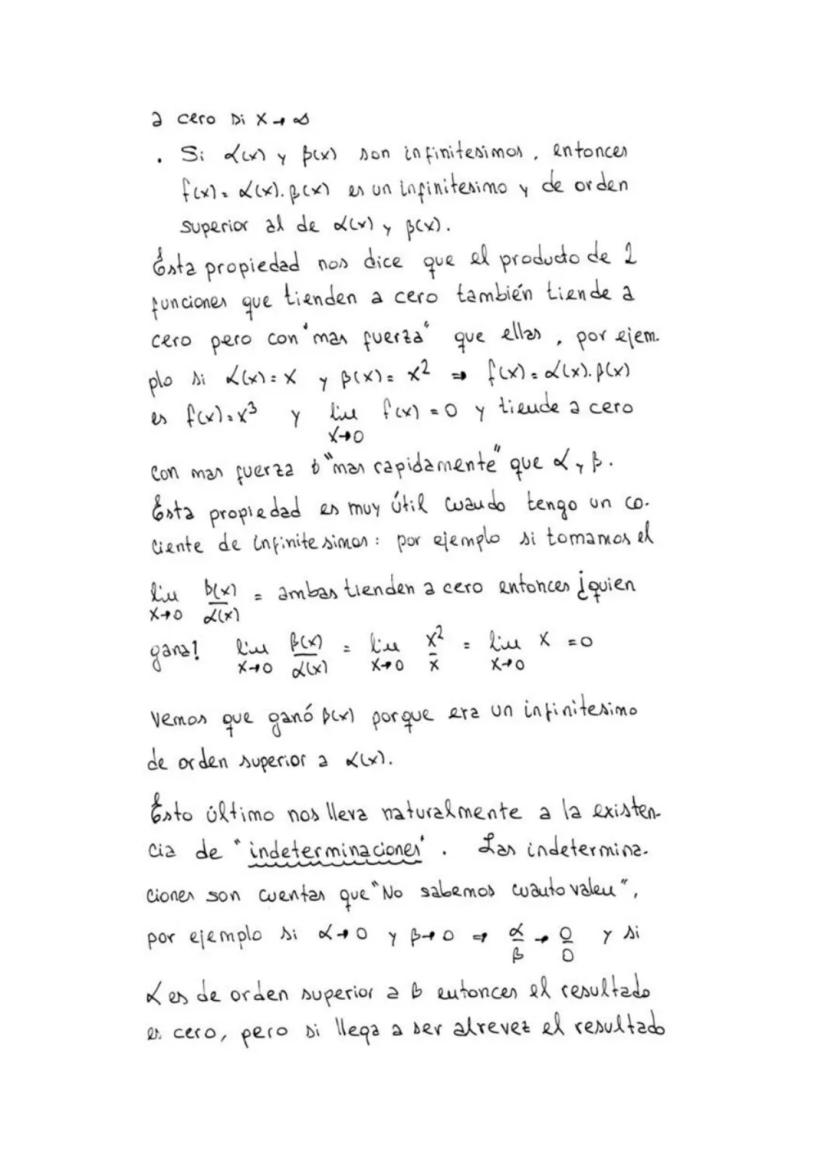 a cero si x → ∞
. Si α(x) y β(x) son infinitesimos, entonces
f(x) = α(x).β(x) es un infinitesimo y de orden
superior al de α(x) y β(x).
Esta propiedad nos dice que el producto de 2
funciones que tienden a cero también tiende a
cero pero con "mas fuerza" que ellas, por ejem-
plo si α(x) = x y β(x) = x² ⇒ f(x) = α(x).β(x)
es f(x) = x³ y lim f(x) = 0 y tiende a cero
x→0
con mas fuerza ó "mas rapidamente" que α y β.
Esta propiedad es muy útil cuando tengo un co-
ciente de infinitesimos: por ejemplo si tomamos el
lim β(x)/α(x) = ambas tienden a cero entonces ¿quien
x→0
gana? lim β(x)/α(x) = lim x²/x = lim x = 0
x→0 x→0 x→0
Vemos que ganó β(x) porque era un infinitesimo
de orden superior a α(x).
Esto último nos lleva naturalmente a la existen-
cia de "indeterminaciones". Las indetermina-
ciones son cuentas que "No sabemos cuanto valen",
por ejemplo si α→0 y β→0 ⇒ α/β → 0/0 y si
α es de orden superior a β entonces el resultado
es cero, pero si llega a ser alrevez el resultado